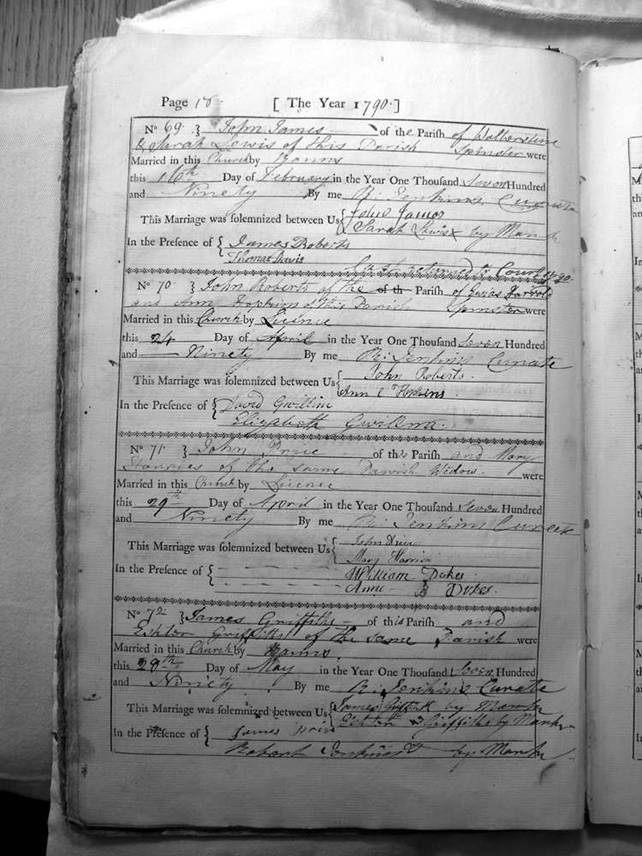 Page 18. [ The Year 1790.]
No 69. } John James of the Parish of Walterstone
& Sarah Lewis of this Parish Spinster were
Married in this Church by Banns
this 16th Day of February in the Year One Thousand Seven Hundred
and Ninety By me R: Jenkins Curate
This Marriage was solemnized between Us { John James
Sarah Lewis x by Mark
In the Presence of { James Roberts
Thomas Davis
No 70 } John Roberts of the of th Parish of
and Ann Hopkins of this Parish Spinster were
Married in this Church by Licence
this 24 Day of April in the Year One Thousand Seven Hundred
and Ninety By me R: Jenkins Curate
This Marriage was solemnized between Us { John Roberts.
Ann Hopkins.
In the Presence of { David Gwillim
Elizabeth Gwillim.
No 71 } John Price of the Parish and Mary
of the same Parish Widow. were
Married in this Church by Licence
this 29th Day of April in the Year One Thousand Seven Hundred
and Ninety By me R: Jenkins Curate
This Marriage was solemnized between Us { John Price
Mary
In the Presence of { William Dukes
Anne B Dukes.
No 72 } James Griffiths of this Parish and
Esther Griffiths of the same Parish were
Married in this Church by Banns.
this 29th Day of May in the Year One Thousand Seven Hundred
and Ninety By me R: Jenkins Curate
This Marriage was solemnized between Us { James Griffith by Mark
Esther Griffiths by Mark
In the Presence of { James Price
Robert Jenkins by Mark